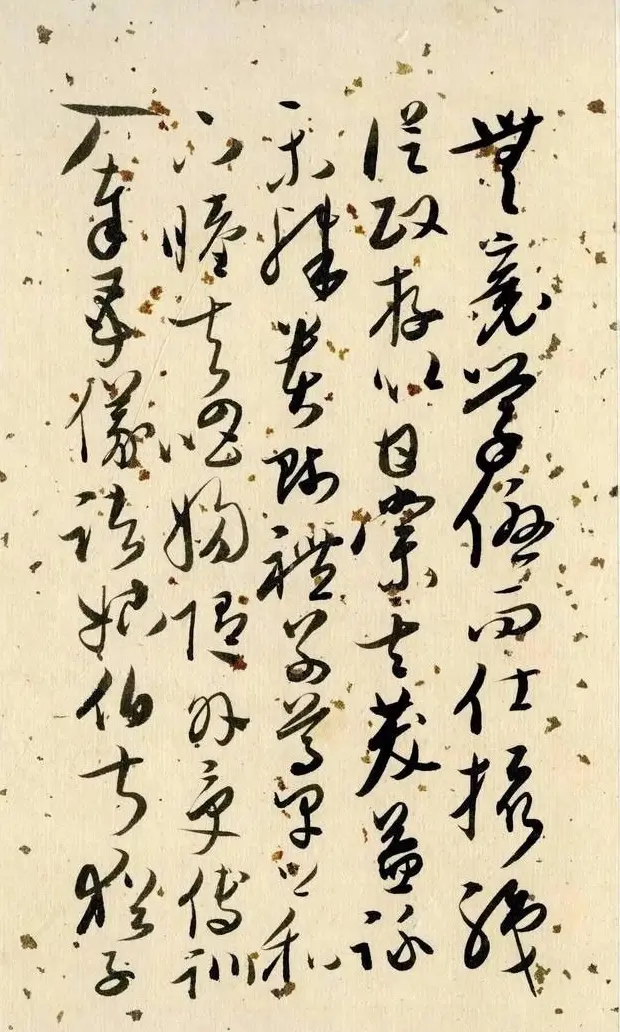 無竟學優登仕攝職
從政存以甘棠去益詠
樂殊貴賤禮別尊卑上和
下睦夫唱婦隨外受傅訓
入奉母儀諸姑伯叔猶子